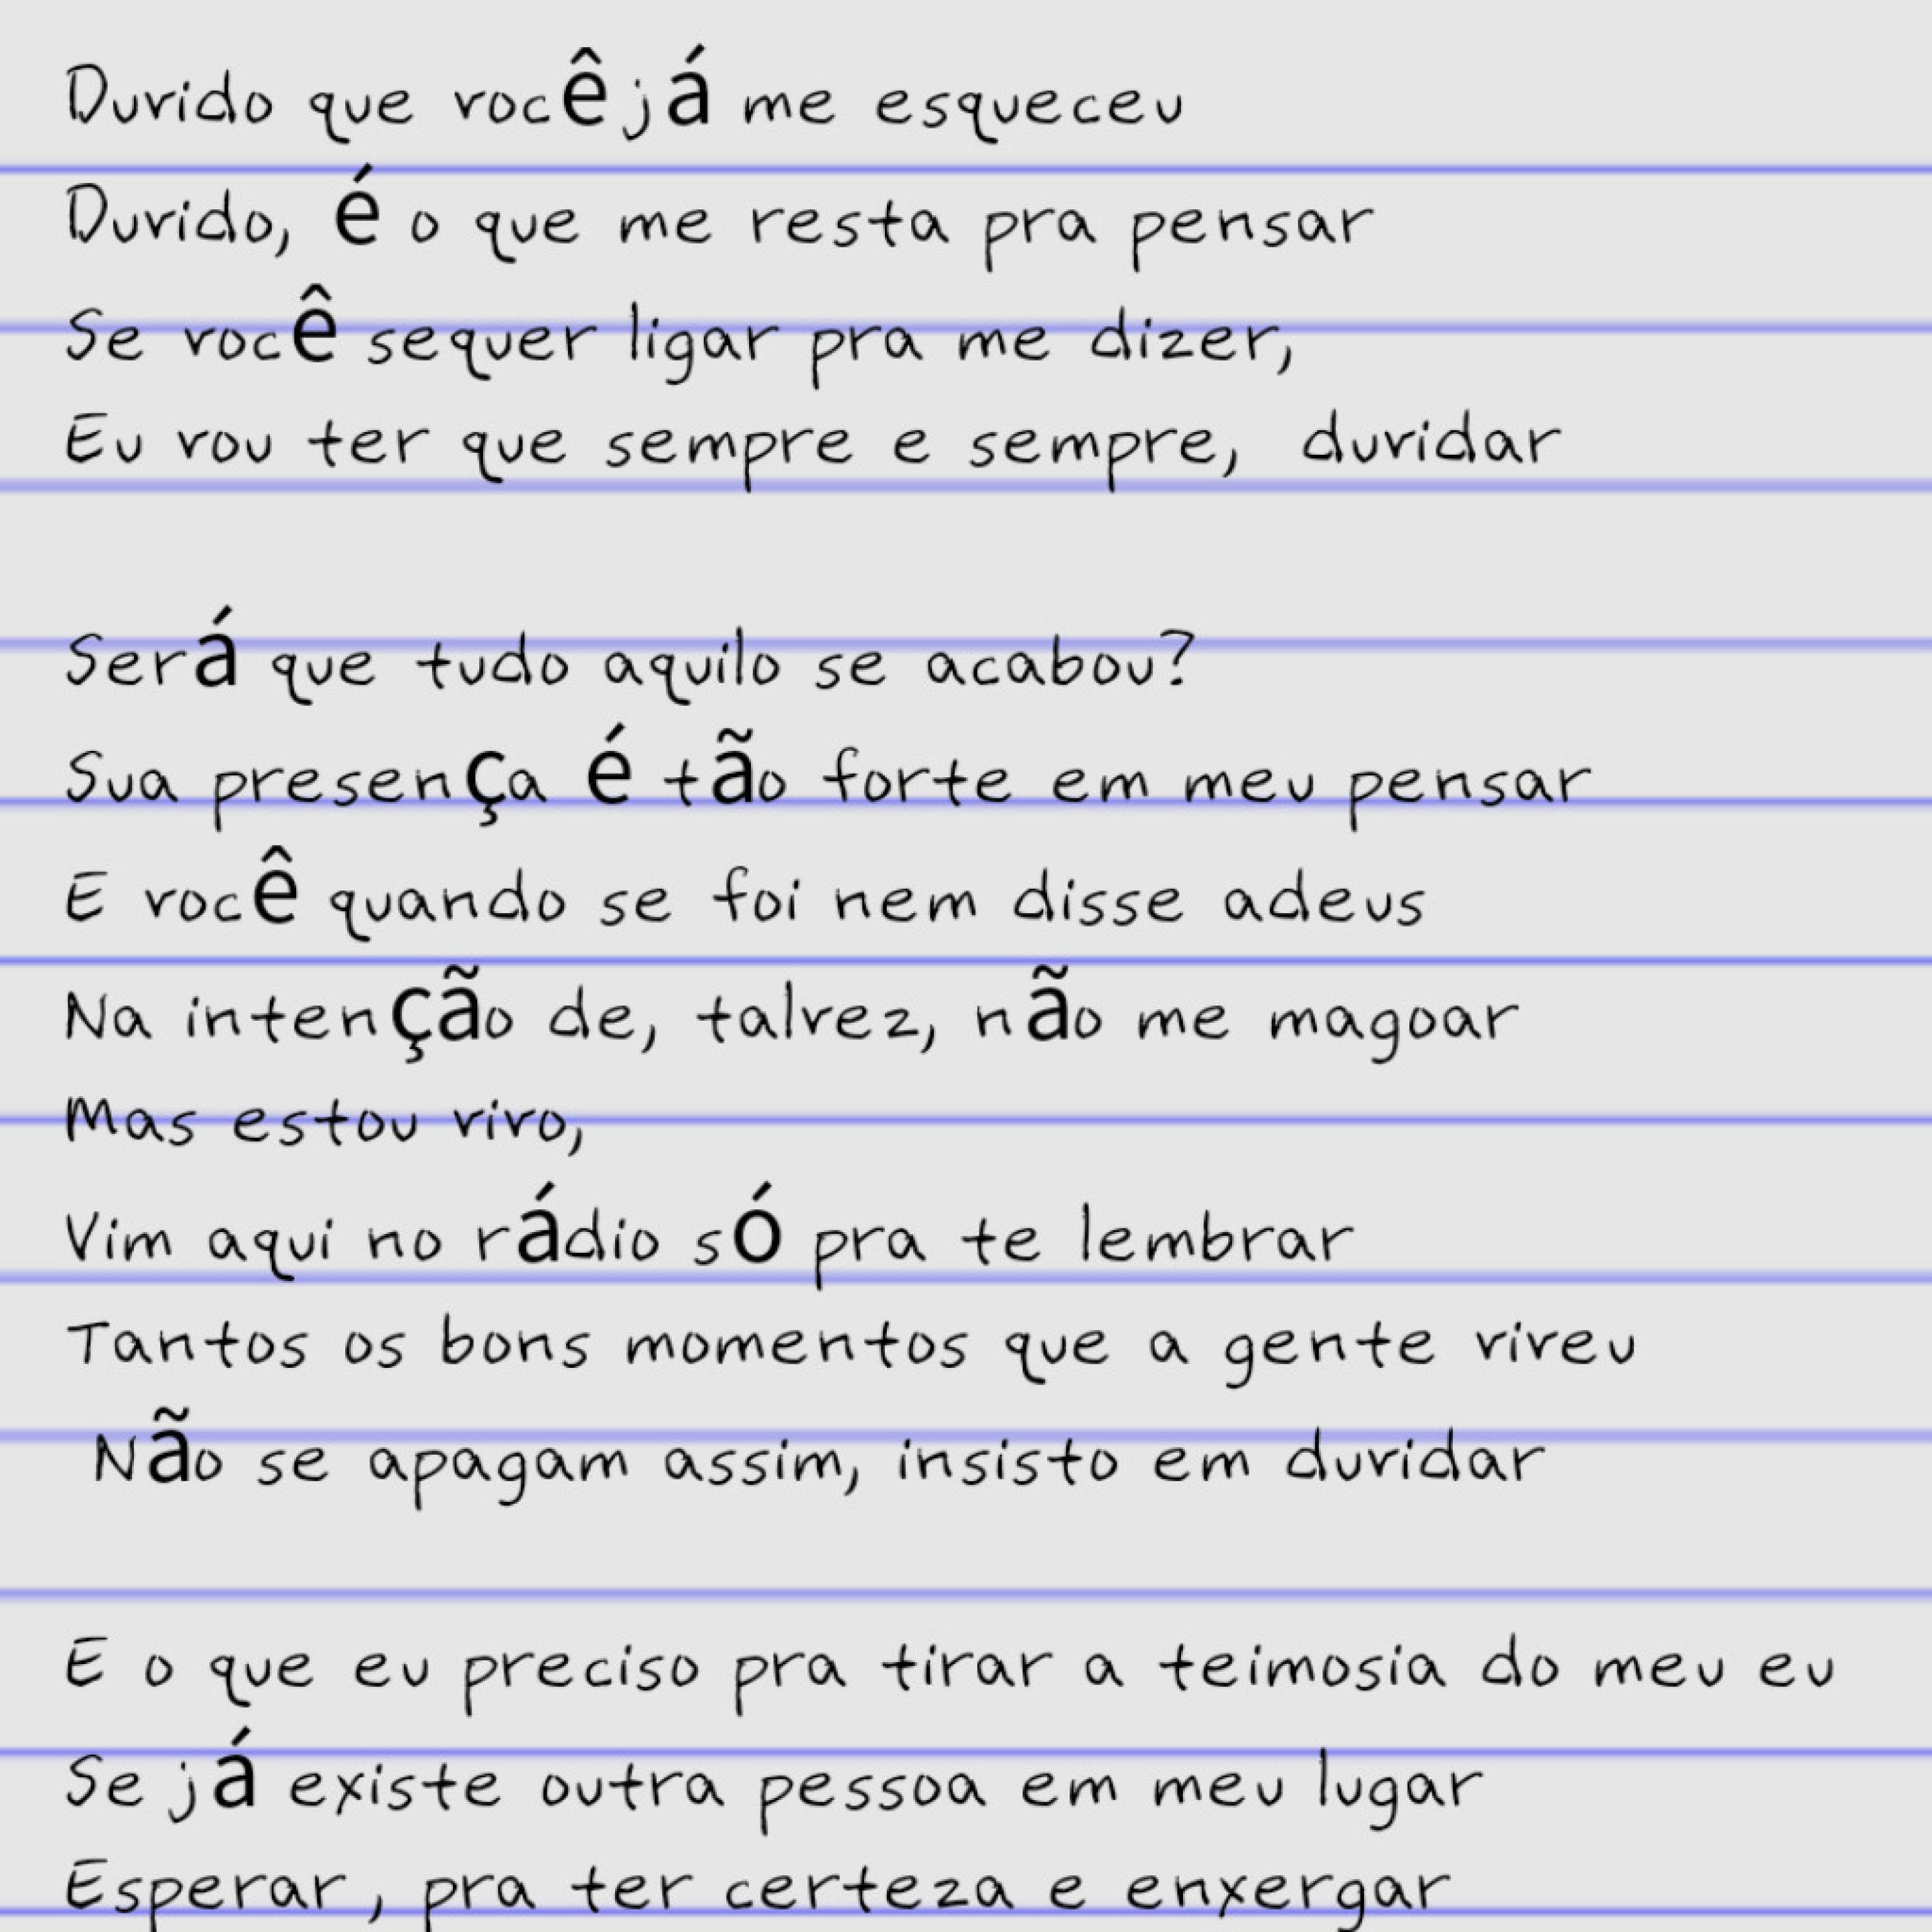 Duvido que você já me esqueceu
Duvido, é o que me resta pra pensar
Se você sequer ligar pra me dizer,
Eu vou ter que sempre e sempre, duvidar
Será que tudo aquilo se acabou?
Sua presença é tão forte em meu pensar
E você quando se foi nem disse adeus
Na intenção de, talvez, não me magoar
Mas estou vivo,
Vim aqui no rádio só pra te lembrar
Tantos os bons momentos que a gente viveu
Não se apagam assim, insisto em duvidar
E o que eu preciso pra tirar a teimosia do meu eu
Se já existe outra pessoa em meu lugar
Esperar, pra ter certeza e enxergar